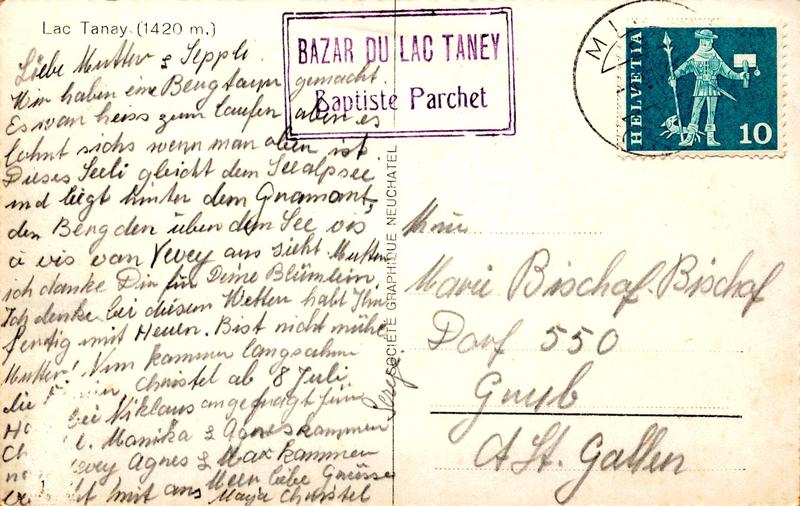 Lac Tanay (1420 m.)
Liebe Mutter & Seppli
Wir haben eine Bergtour gemacht.
Es war heiss zum laufen aber es
lohnt sichs wenn man oben ist
Dieses Seeli gleicht dem Seealpsee
und liegt hinter dem Gramont,
den Berg den über dem See vis
à vis von Vevey aus sieht. Mutter
ich danke Dir für Deine Blümlein
Ich denke bei diesem Wetter habt Ihr
fertig mit Heuen. Bist nicht müde
Mutter! Nun kommen langsam
die Christel ab 8 Juli
bei Niklaus angefragt für
Monika & Agnes kommen
Vevey Agnes & Max kommen
mit uns Meer liebe Grüsse
Maya Christel
Serge
BAZAR DU LAC TANEY
Baptiste Parchet
SOCIÉTÉ GRAPHIQUE NEUCHATEL
HELVETIA
10
Marie Bischof-Bischof
Dorf 550
Grub
St. Gallen